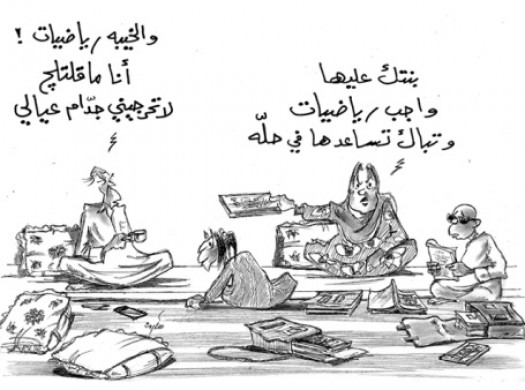 بنتك عليها
واجب رياضيات
وتباك تساعدها في حلّه
والخيبه رياضيات !
أنا ما قلتلج
لا تحرجيني جدّام عيالي